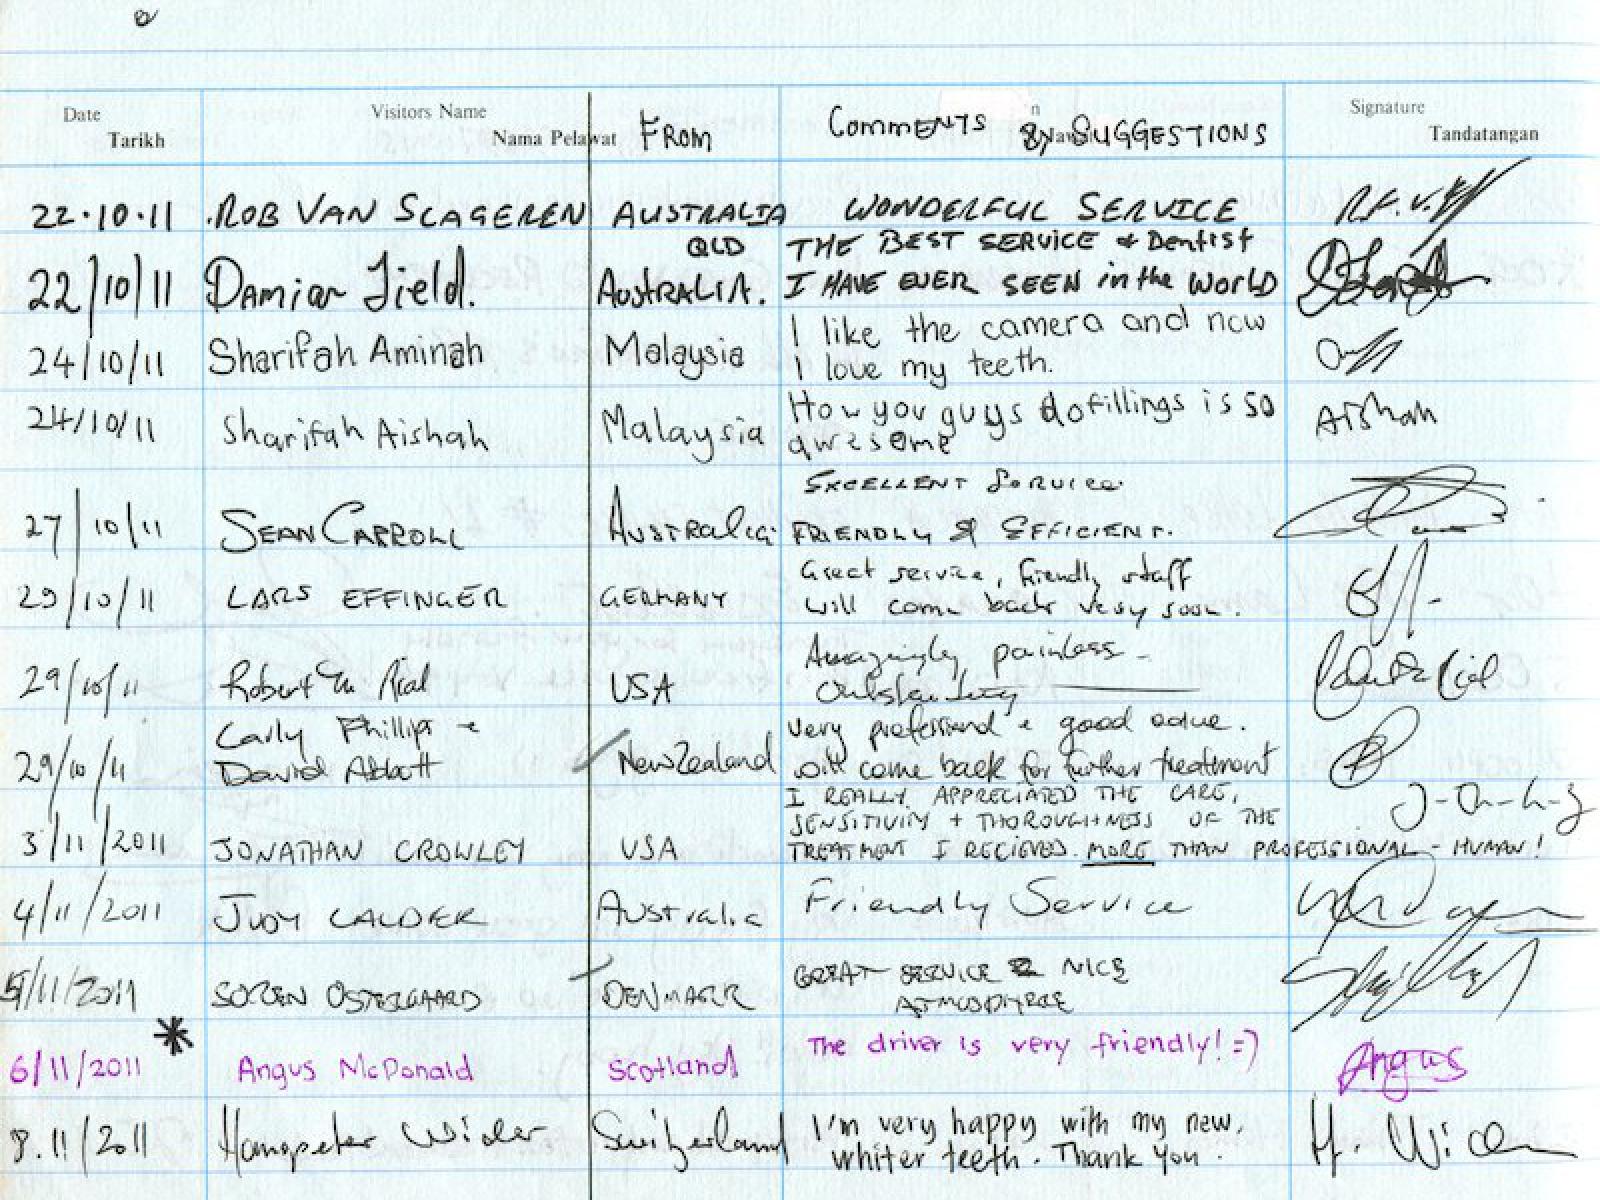 Date Tarikh Visitors Name Nama Pelawat FROM Comments & SUGGESTIONS Signature Tandatangan
22.10.11 ROB VAN SLAGEREN AUSTRALIA WONDERFUL SERVICE
QLD THE BEST SERVICE & Dentist
22/10/11 Damian Field. AUSTRALIA. I HAVE EVER SEEN in the WORLD
I like the camera and now
24/10/11 Sharifah Aminah Malaysia I love my teeth.
How you guys do fillings is so
24/10/11 Sharifah Aishah Malaysia awesome Aishah
EXCELLENT SERVICE
27/10/11 SEAN CARROLL AUSTRALIA FRIENDLY & EFFICIENT.
Great service, friendly staff
29/10/11 LARS EFFINGER GERMANY will come back very soon.
Amazingly painless -
29/10/11 Robert Rial USA Outstanding
Carly Phillips + very professional + good value.
29/10/11 David Abbott New Zealand will come back for further treatment
I REALLY APPRECIATED THE CARE,
SENSITIVITY + THOROUGHNESS OF THE
3/11/2011 JONATHAN CROWLEY USA TREATMENT I RECIEVED. MORE THAN PROFESSIONAL - HUMAN!
4/11/2011 JUDY CALDER Australia Friendly Service
GREAT SERVICE & NICE
5/11/2011 SOREN OSTERGAARD DENMARK ATMOSPHERE
* The driver is very friendly! =)
6/11/2011 Angus McDonald Scotland Angus
I'm very happy with my new,
8.11/2011 Hanspeter Wider Switzerland whiter teeth. Thank you. H. Wider